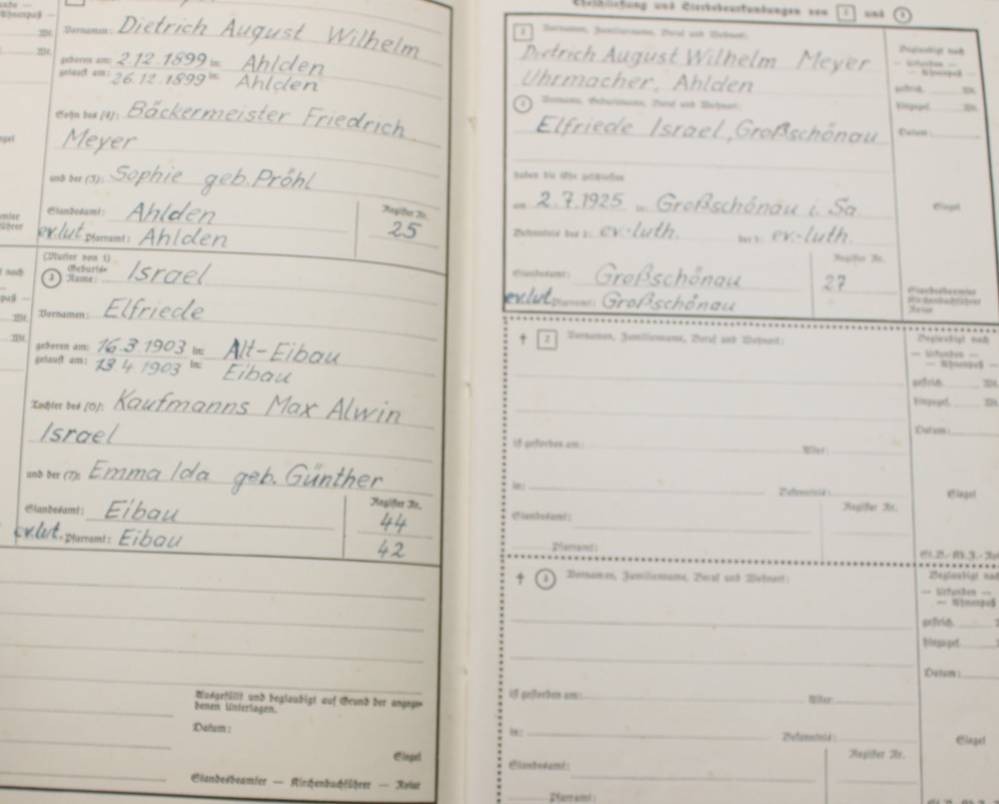 Vornamen: Dietrich August Wilhelm
geboren am: 2.12.1899 in: Ahlden
getauft am: 26.12.1899 in: Ahlden
Sohn des (4): Bäckermeister Friedrich
Meyer
und der (5): Sophie geb. Pröhl
Standesamt: Ahlden
Register Nr.
25
ev.lut. Pfarramt: Ahlden
(Mutter von 1)
3 Geburts-
Name: Israel
Vornamen: Elfriede
geboren am: 16.3.1903 in: Alt-Eibau
getauft am: 13.4.1903 in: Eibau
Tochter des (6): Kaufmanns Max Alwin
Israel
und der (7): Emma Ida geb. Günther
Standesamt: Eibau
Register Nr.
44
ev.lut. Pfarramt: Eibau
42
Ausgefüllt und beglaubigt auf Grund der angege-
benen Unterlagen.
Datum:
Siegel
Standesbeamter — Kirchenbuchführer —
Eheschließung und Sterbebeurkundungen von 2 und 3
2 Vornamen, Familienname, Beruf und Wohnort:
Dietrich August Wilhelm Meyer
Uhrmacher, Ahlden
3 Vorname, Geburtsname, Beruf und Wohnort:
Elfriede Israel, Großschönau
haben die Ehe geschlossen
am 2.7.1925 in Großschönau i. Sa.
Bekenntnis des 2: ev.-luth. der 3: ev.-luth.
Register Nr.
Standesamt: Großschönau 27
ev.lut. Pfarramt: Großschönau
Beglaubigt nach
— Urkunden —
— Ahnenpaß
gestrich.
hinzugef.
Datum:
Siegel
Standesbeamter
Kirchenbuchführer
† 2 Vornamen, Familienname, Beruf und Wohnort:
ist gestorben am: Alter:
in: Bekenntnis:
Register Nr.
Standesamt:
Pfarramt:
Beglaubigt nach
— Urkunden —
— Ahnenpaß
gestrich.
hinzugef.
Datum:
Siegel
† 3 Vornamen, Familienname, Beruf und Wohnort:
ist gestorben am: Alter:
in: Bekenntnis:
Register Nr.
Standesamt:
Pfarramt:
Beglaubigt nach
— Urkunden —
— Ahnenpaß
gestrich.
hinzugef.
Datum:
Siegel